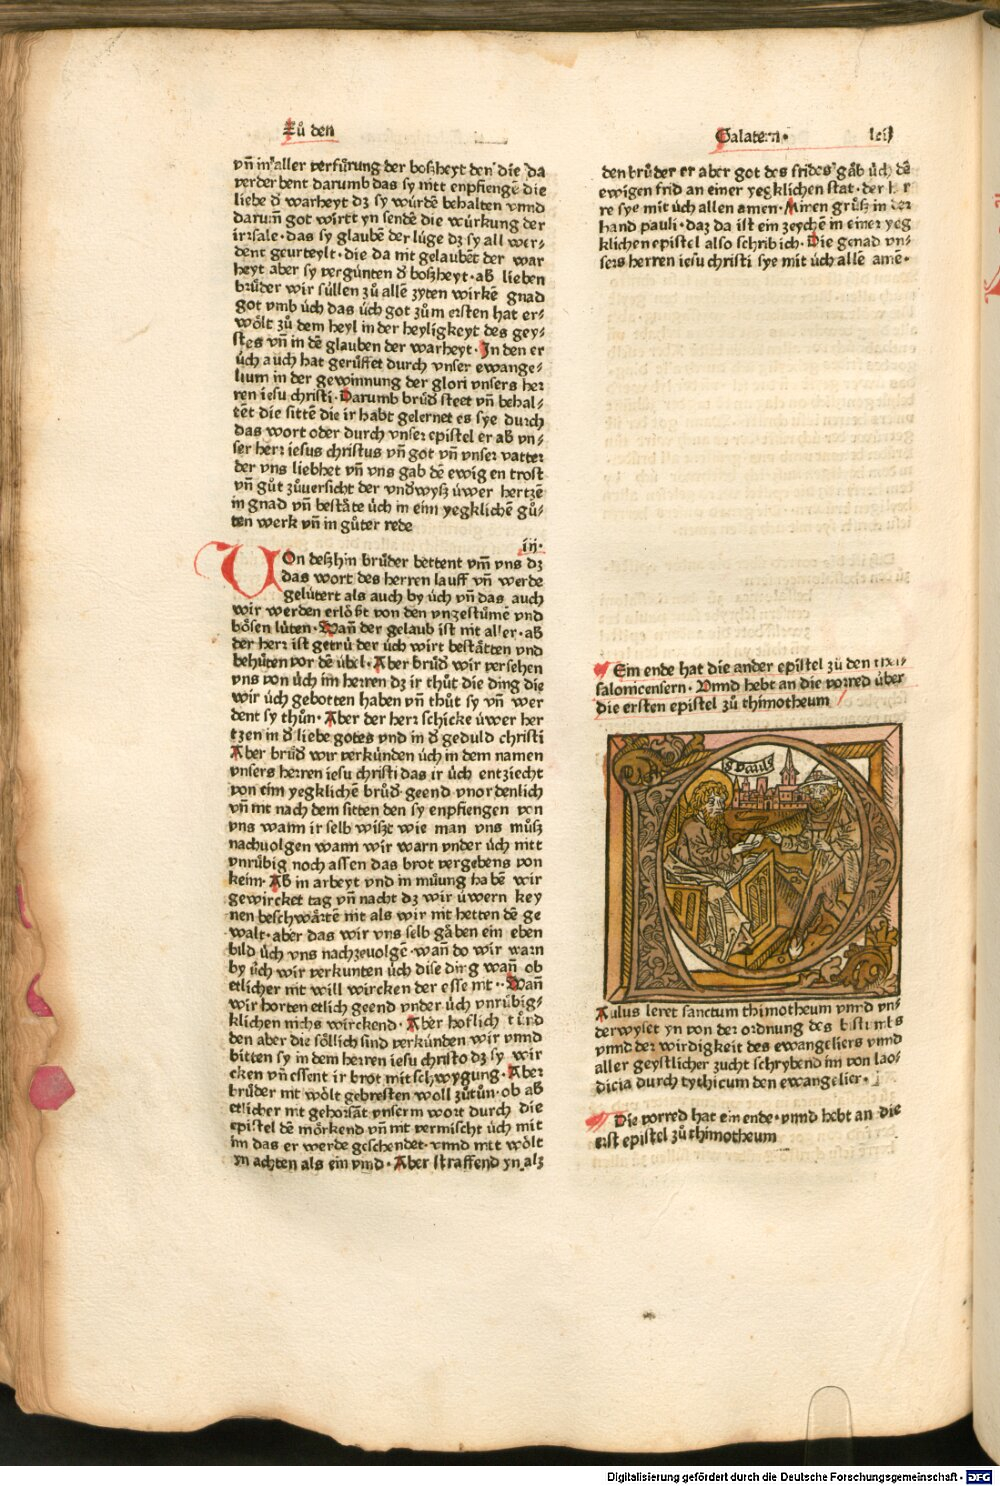 Zů den
Galatern·
vñ in aller verfürung der boßheyt den die da
verderbent darumb das sy nitt enpfiengē die
liebe d̄ warheyt dz sy würdē behalten vnnd
darum̄ got wirtt yn sendē die würkung der
irrsale · das sy glaubē der lüge dz sy all wer⸗
dent geurteylt · die da nit gelaubēt der war
heyt aber sy vergünten d̄ boßheyt · ab̄ lieben
brůder wir süllen zů allē zyten wirkē gnad
got vmb üch das üch got zům ersten hat er⸗
wölt zů dem heyl in der heyligkeyt des gey⸗
stes vñ in dē glauben der warheyt · In den er
üch auch hat gerůffet durch vnser ewange⸗
lium in der gewinnung der glori vnsers her
ren iesu christi · Darumb brůd̄ steet vñ behal⸗
tēt die sittē die ir habt gelernet es sye durch
das wort oder durch vnser epistel er ab̄ vn⸗
ser herr iesus christus vñ got vñ vnser vatter
der vns liebhet vñ vns gab dē ewigen trost
vñ gůt zůuersicht der vnd̄wyß üwer hertzē
in gnad vñ bestäte üch in eim yegklichē gů⸗
ten werk vñ in gůter rede
iij·
VOn deßhin brůder bettent vm̄ vns dz
das wort des herren lauff vñ werde
gelütert als auch by üch vñ das auch
wir werden erlößt von den vngestümē vnd
bösen lüten · Wañ der gelaub ist nit aller · ab̄
der herr ist getrü der üch wirt bestätten vnd
behüten vor dē übel · Aber brůd̄ wir versehen
vns von üch im herren dz ir thůt die ding die
wir üch gebotten haben vñ thůt sy vñ wer
dent sy thůn · Aber der herr schicke üwer her
tzen in d̄ liebe gotes vnd in d̄ geduld christi
Aber brůd̄ wir verkünden üch in dem namen
vnsers herren iesu christi das ir üch entziecht
von eim yegklichen brůd̄ geend vnordenlich
vñ nit nach dem sitten den sy enpfiengen von
vns wann ir selb wißt wie man vns můß
nachuolgen wann wir warn vnder üch nitt
vnrübig noch assen das brot vergebens von
keim · Ab̄ in arbeyt vnd in müung habē wir
gewircket tag vñ nacht dz wir üwern key
nen beschwärtē nit als wir nit hetten dē ge
walt · aber das wir vns selb gäben ein eben
bild üch vns nachzeuolgē · wañ do wir warn
by üch wir verkunten üch dise ding wañ ob
etlicher nit will wircken der esse nit · Wañ
wir horten etlich geend vnder üch vnrübig⸗
klichen nichs wirckend · Aber
den aber die söllich sind verkünden wir vnnd
bitten sy in dem herren iesu christo dz sy wir
cken vñ essent ir brot mit schwygung · Aber
brůder nit wölt gebresten woll zůtůn · ob ab̄
etlicher nit gehorsāt vnserm wort durch die
epistel dē mörkend vñ nit vermischt üch mit
im das er werde geschendet · vnnd nitt wölt
yn achten als ein vind · Aber straffend yn alz
den brůder er aber got des frides gäb üch dē
ewigen frid an einer yegklichen stat · der her
re sye mit üch allen amen · Minen grůß in der
hand pauli · daz da ist ein zeychē in einer yeg
klichen epistel also schrib ich · Die genad vn⸗
sers herren iesu christi sye mit üch allē amē ·
Ein ende hat die ander epistel zů den thes⸗
salonicensern · Vnnd hebt an die vorred über
die ersten epistel zů thimotheum
S pauls
Paulus leret sanctum thimotheum vnnd vn⸗
derwyset yn von der ordnung des bistumbs
vnnd der wirdigkeit des ewangeliers vnnd
aller geystlicher zucht schrybend im von lao⸗
dicia durch tythicum den ewangelier ·
Die vorred hat ein ende · vnnd hebt an die
erst epistel zů thimotheum
Digitalisierung gefördert durch die Deutsche Forschungsgemeinschaft - DFG